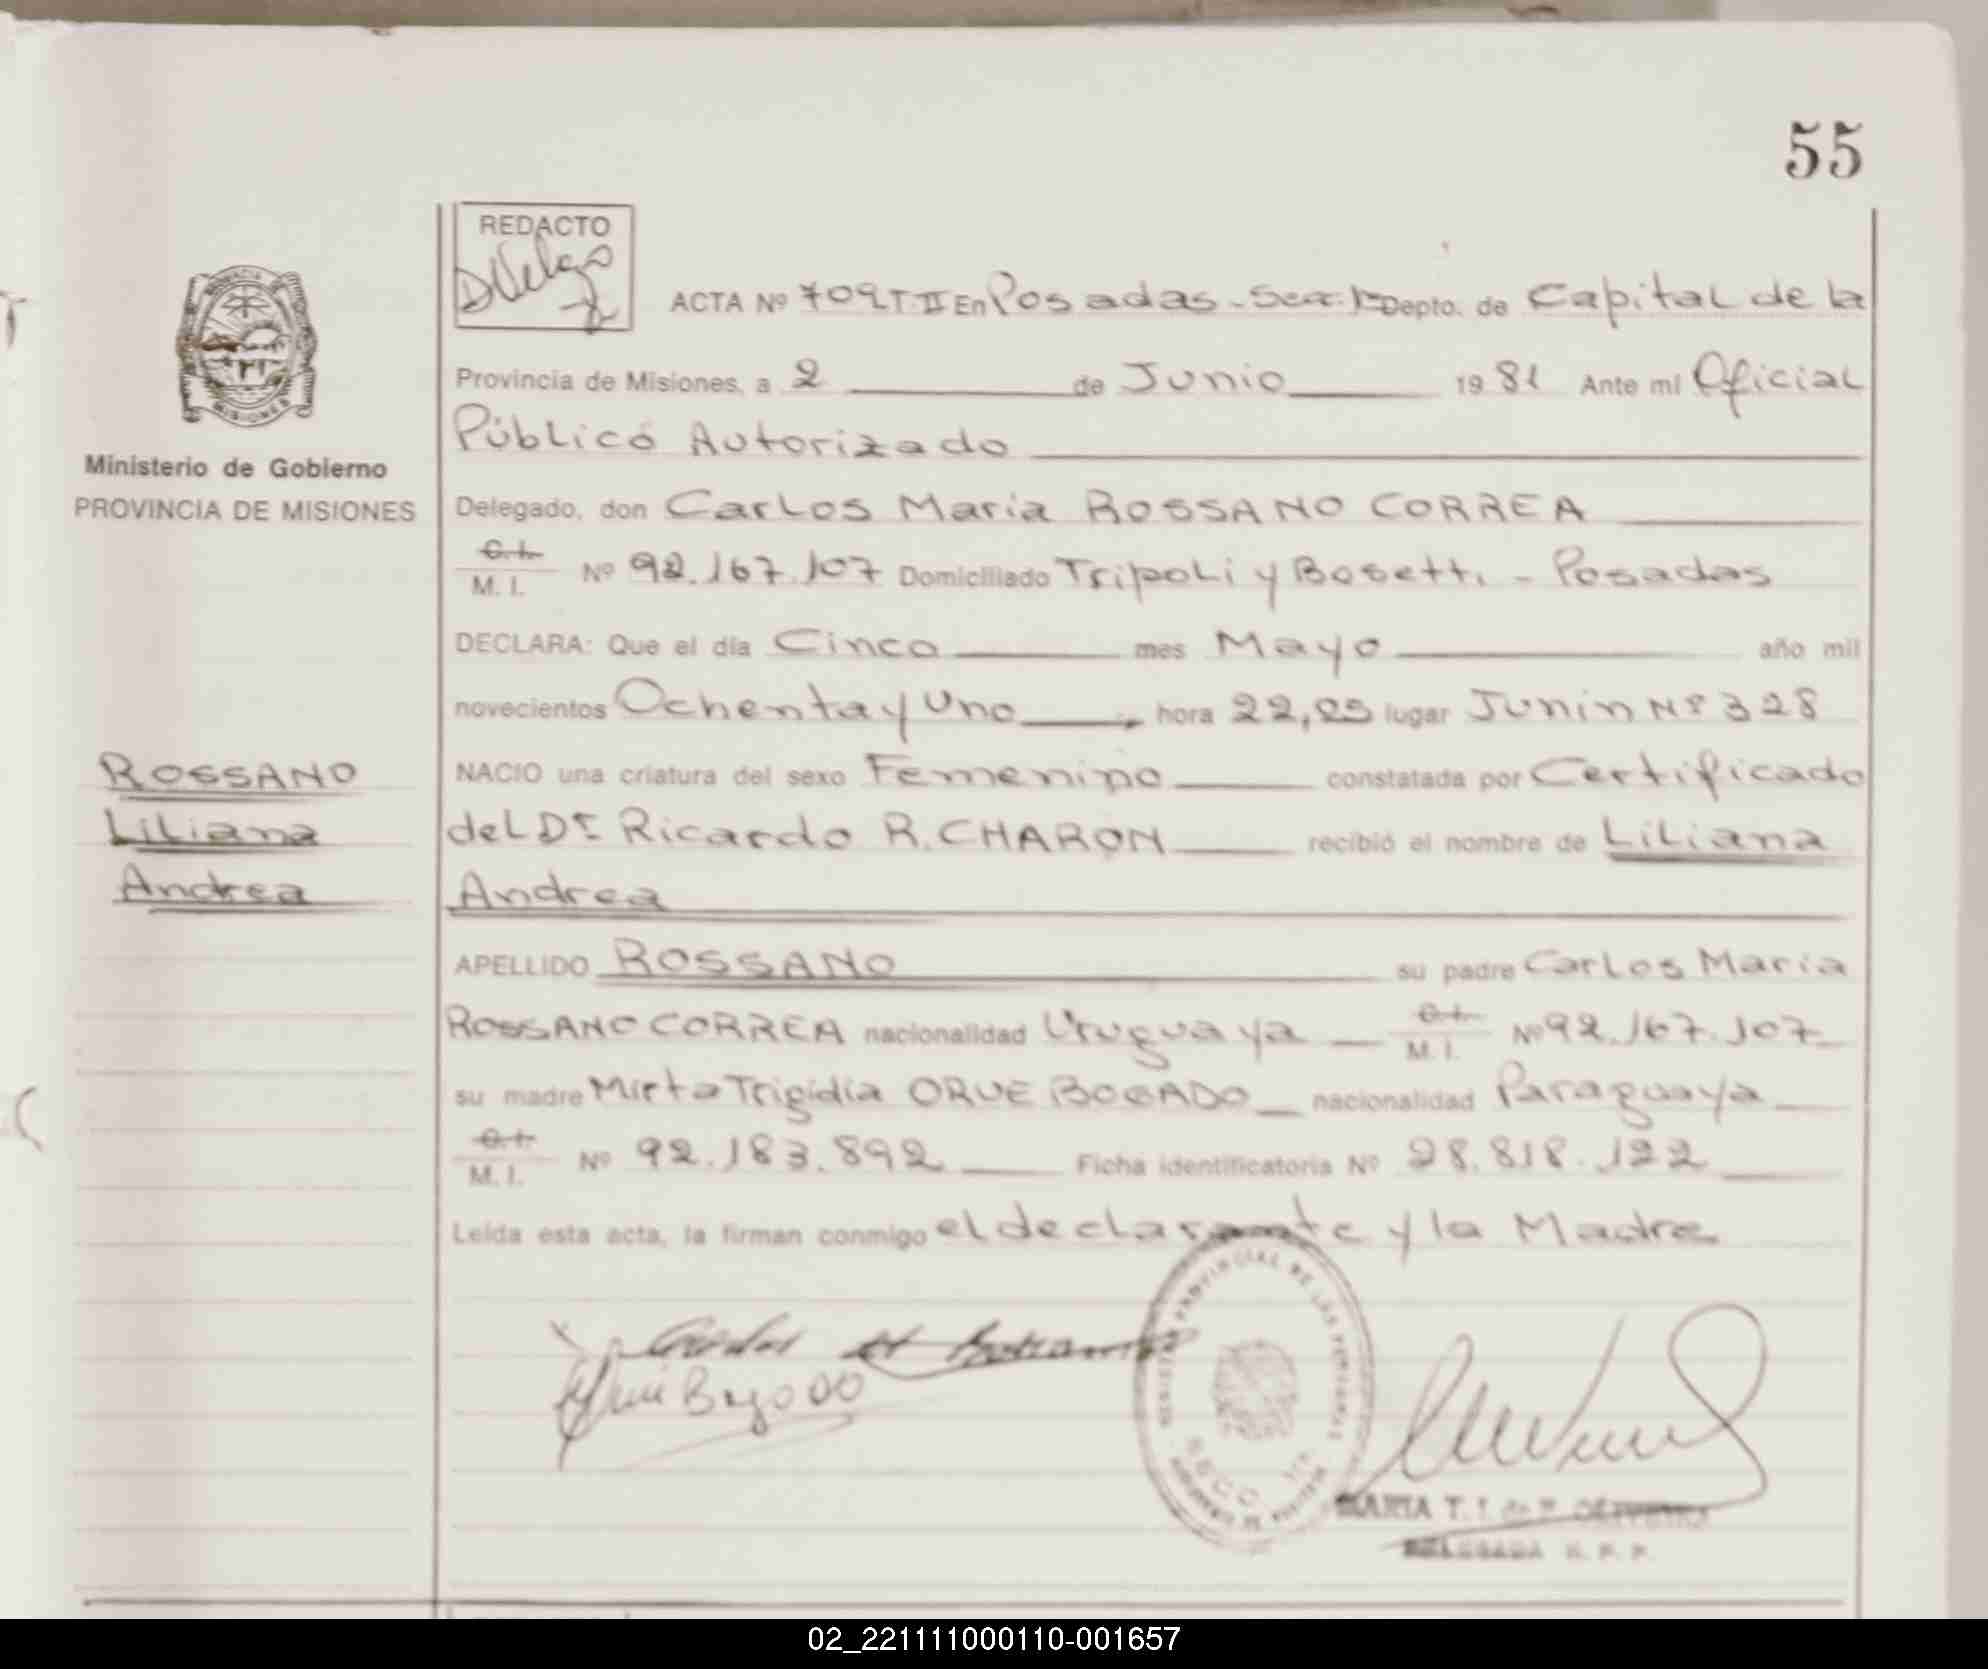 55
REDACTO
ACTA Nº 709 T II En Posadas - Secc. 1ª Depto. de Capital de la
Provincia de Misiones, a 2 de Junio 1981 Ante mí Oficial
Público Autorizado
Ministerio de Gobierno
PROVINCIA DE MISIONES
Delegado, don Carlos Maria ROSSANO CORREA
C.I.
M. I. Nº 92.167.107 Domiciliado Tripoli y Bosetti - Posadas
DECLARA: Que el día Cinco mes Mayo año mil
novecientos Ochenta y Uno, hora 22,05 lugar Junin Nº 328
ROSSANO
Liliana
Andrea
NACIO una criatura del sexo Femenino constatada por Certificado
del Dr Ricardo R. CHARON recibió el nombre de Liliana
Andrea
APELLIDO ROSSANO su padre Carlos Maria
ROSSANO CORREA nacionalidad Uruguaya C.I. M. I. Nº 92.167.107
su madre Mirta Trigidia ORUE BOGADO nacionalidad Paraguaya
C.I.
M. I. Nº 92.183.892 Ficha identificatoria Nº 28.818.122
Leída esta acta, la firman conmigo el declarante y la Madre
REGISTRO PROVINCIAL DE LAS PERSONAS
MARIA T. I. de P.
DELEGADA R. P. P.
02_221111000110-001657